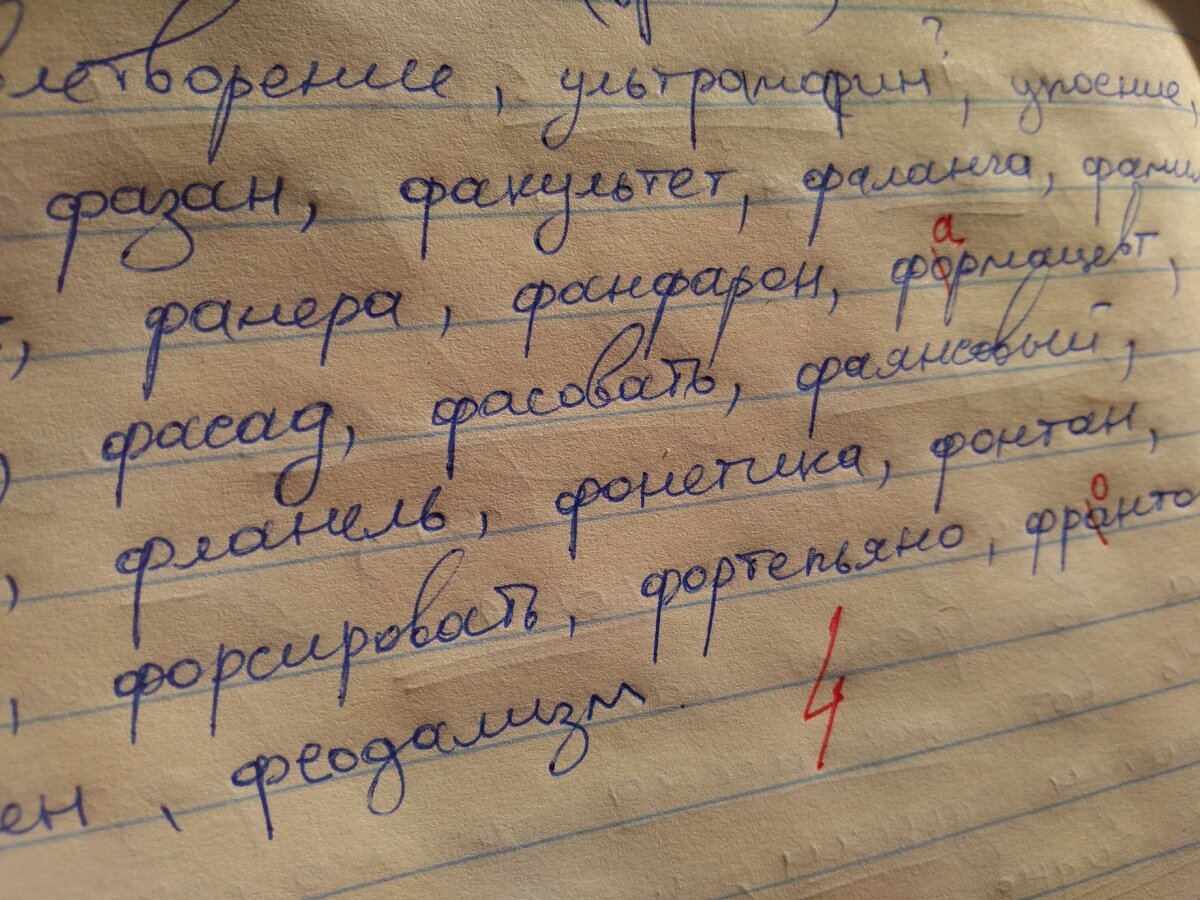 летворение, ультрамарин?, упоение,
фазан, факультет, фаланга, фамил
т, фанера, фанфарон, фармацевт,
фасад, фасовать, фаянсовый,
, фланель, фонетика, фонтан,
, форсировать, фортепьяно, фронто
ен, феодализм. 4